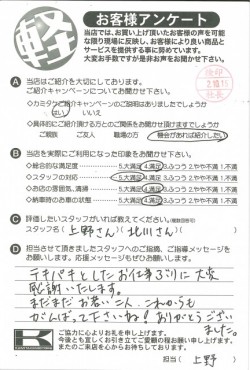 軽
お客様アンケート
当店では、お買い上げ頂いたお客様の声を可能な限り現場に反映し、お客様により良い商品とサービスを提供する事に努めています。
大変お手数ですが是非お声をお聞かせ下さい。
A 当店はご紹介を大切にしております。
ご紹介キャンペーンについてお聞かせ下さい。
◇カミタケご紹介キャンペーンのご説明はありましたでしょうか
はい いいえ
◇具体的にご紹介頂ける方とのご関係をお聞かせ頂けますでしょうか
ご親族 ご友人 職場の方 機会があれば紹介したい
B 当店を実際にご利用になった印象をお聞かせ下さい。
◇総合的な満足度 5大満足 4.満足 3.ふつう 2.やや不満 1.不満
◇スタッフの対応 5.大満足 4.満足 3.ふつう 2.やや不満 1.不満
◇お店の雰囲気、清掃 5.大満足 4.満足 3.ふつう 2.やや不満 1.不満
◇納車時のお車の状態 5.大満足 4.満足 3.ふつう 2.やや不満 1.不満
C 評価したいスタッフがいれば教えてください。
スタッフ名( 上野さん )( 北川さん )
D 担当させて頂きましたスタッフへのご指摘、ご指導メッセージをお願いします。応援メッセージもぜひお願いします。
テキパキとしたお仕事ぶりに大変
感謝いたします。
まだまだお若い二人 これからも
がんばって下さいね! ありがとうござい
ました。
ご協力に心よりお礼を申し上げます。
今後とも宜しくお引き立てご愛顧の程お願い申し上げます。
またのご来店を心からお待ちしております。
担当( 上野 )